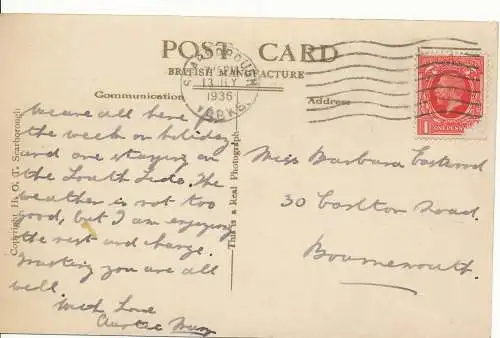 POST CARD
BRITISH MANUFACTURE
Communication
Address
SCARBOROUGH
13 JLY
1936
YORKS.
ONE PENNY
We are all here for
the week on holiday
and are staying on
the South Side. The
weather is not too
good, but I am enjoying
the rest and change.
Trusting you are all
well.
With Love
Auntie
Miss Barbara Eastwood
30 Carlton Road.
Bournemouth.
This is a Real Photograph
Scarborough
Copyright